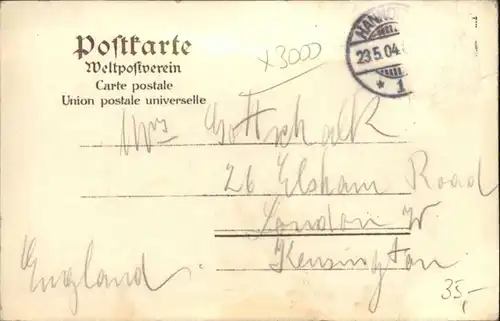 Postkarte
Weltpostverein
Carte postale
Union postale universelle
x3000
HANNO
23.5.04
* 1
Mrs Gottschalk
26 Elsham Road
London W.
Kensington
England
35,-